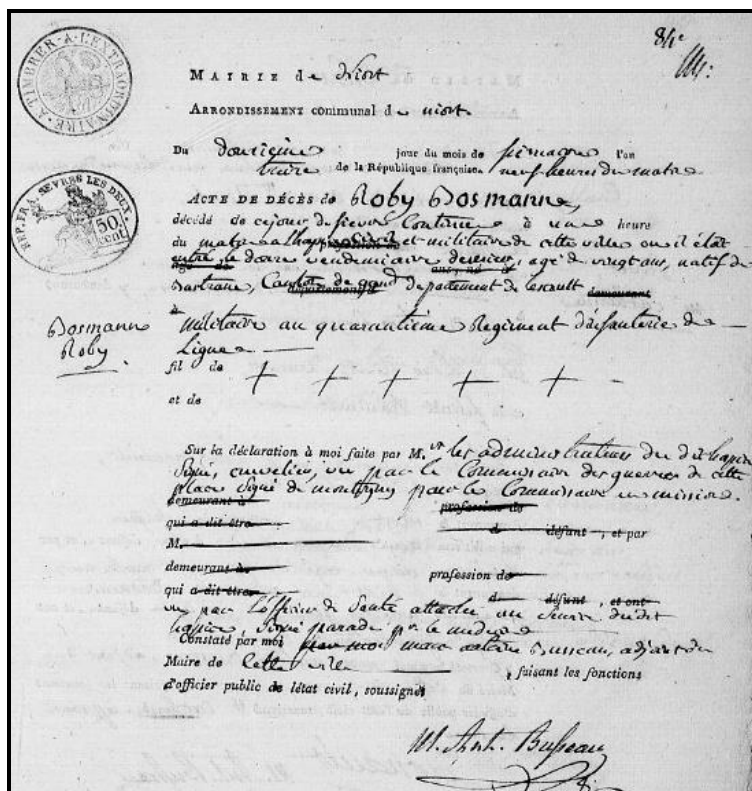 84e
A TIMBRER A L'EXTRAORDINAIRE
MAIRIE de Niort
ARRONDISSEMENT communal de niort
Du douzième jour du mois de frimaire l'an
treize de la République française neuf heures du matin
REP. FRA. SEVRES LES DEUX.
50 cent
ACTE DE DÉCÈS de Roby Bosmanne,
décédé de ce jour de fievre Continue à une heure
du matin a lhospice civil et militaire de cette ville ou il était
entré le douze vendemiaire dernier, agé de vingt ans, natif de
Canton de gand departement de lescault demeurant
à
Bosmanne
Roby
militaire au quarantieme Regiment d'infanterie de
Ligne
fil de
et de
Sur la déclaration à moi faite par M.rs les administrateurs du dit hospice
Signé, cuvelier, vu par le Commissaire des guerres de cette
place Signé de montigny pour le Commissaire en mission.
demeurant à profession de
qui a dit être d défunt, et par
M.
demeurant à profession de
qui a dit être d défunt, et ont
vu par l'officier de santé attaché au Service du dit
hospice, Signé
Constaté par moi marc antoine Busseau, adjoint du
Maire de Cette ville faisant les fonctions
d'officier public de létat civil, soussigné
M. Ant. Busseau